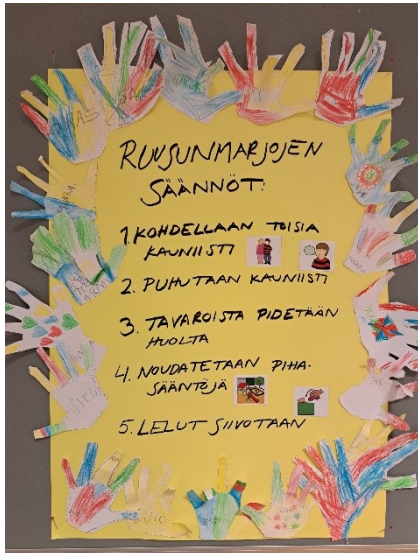 RUUSUNMARJOJEN
SÄÄNNÖT:
1. KOHDELLAAN TOISIA
KAUNIISTI
2. PUHUTAAN KAUNIISTI
3. TAVAROISTA PIDETÄÄN
HUOLTA
4. NOUDATETAAN PIHA-
SÄÄNTÖJÄ
5. LELUT SIIVOTAAN